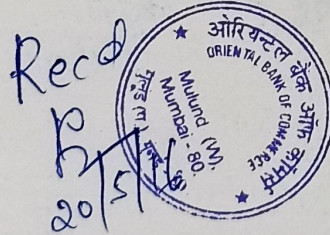 Recd
20/5/
ओरियन्टल बैंक ऑफ कॉमर्स
ORIENTAL BANK OF COMMERCE
Mulund (W),
Mumbai - 80.